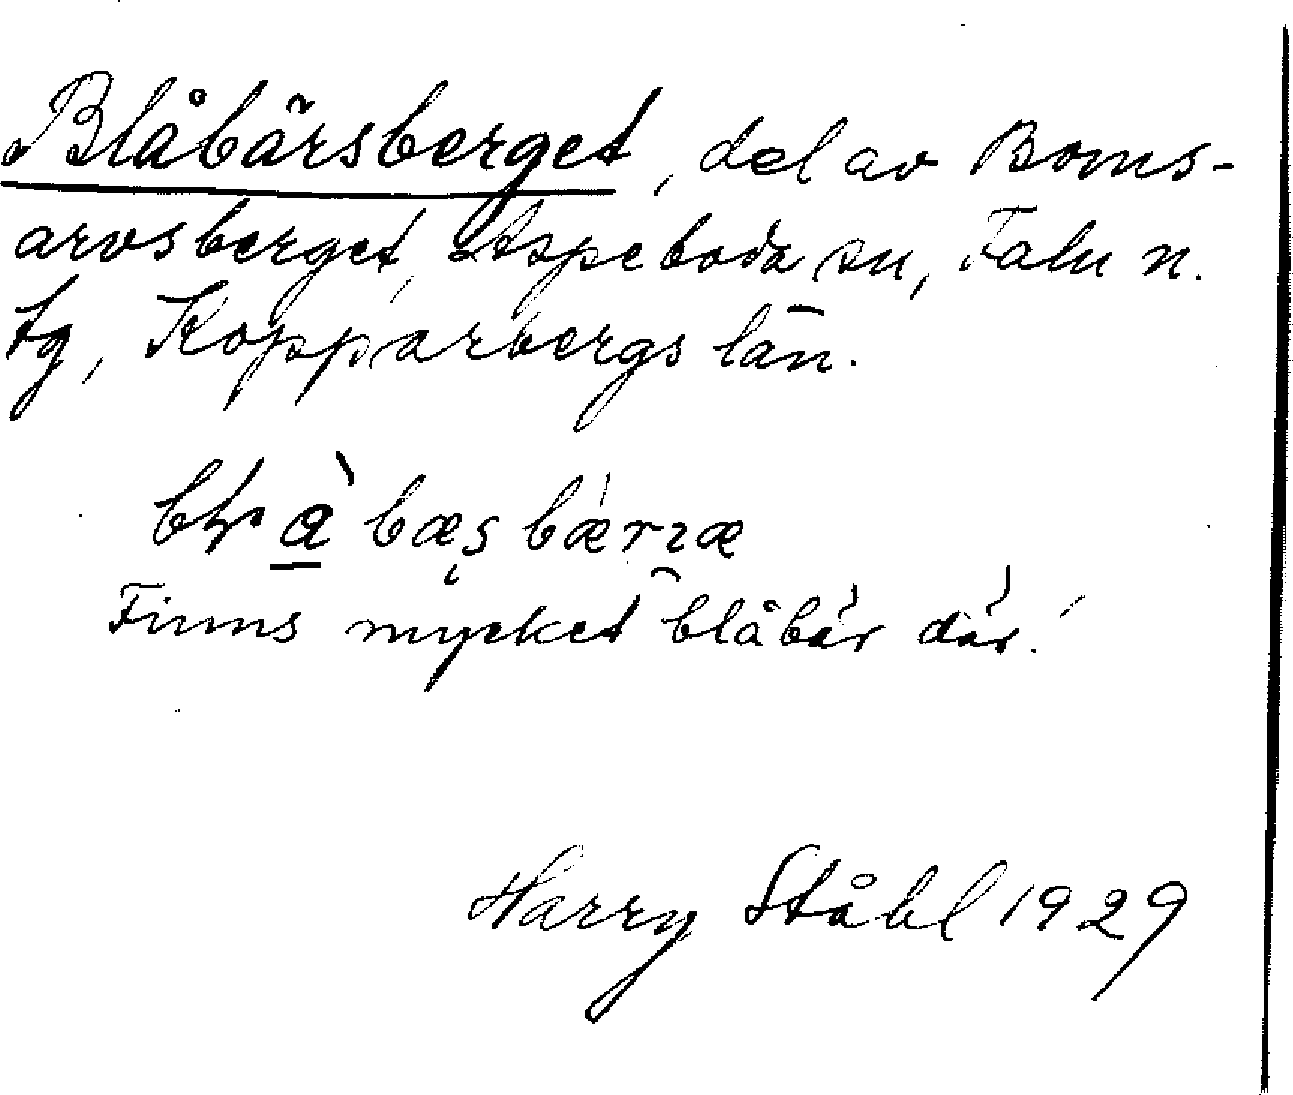 Blåbärsberget, del av Boms-
arvsberget, Aspeboda sn, Falu n.
tg, Kopparbergs län.
bæʂbærɪæ
Finns mycket blåbär där.
Harry Ståhl 1929